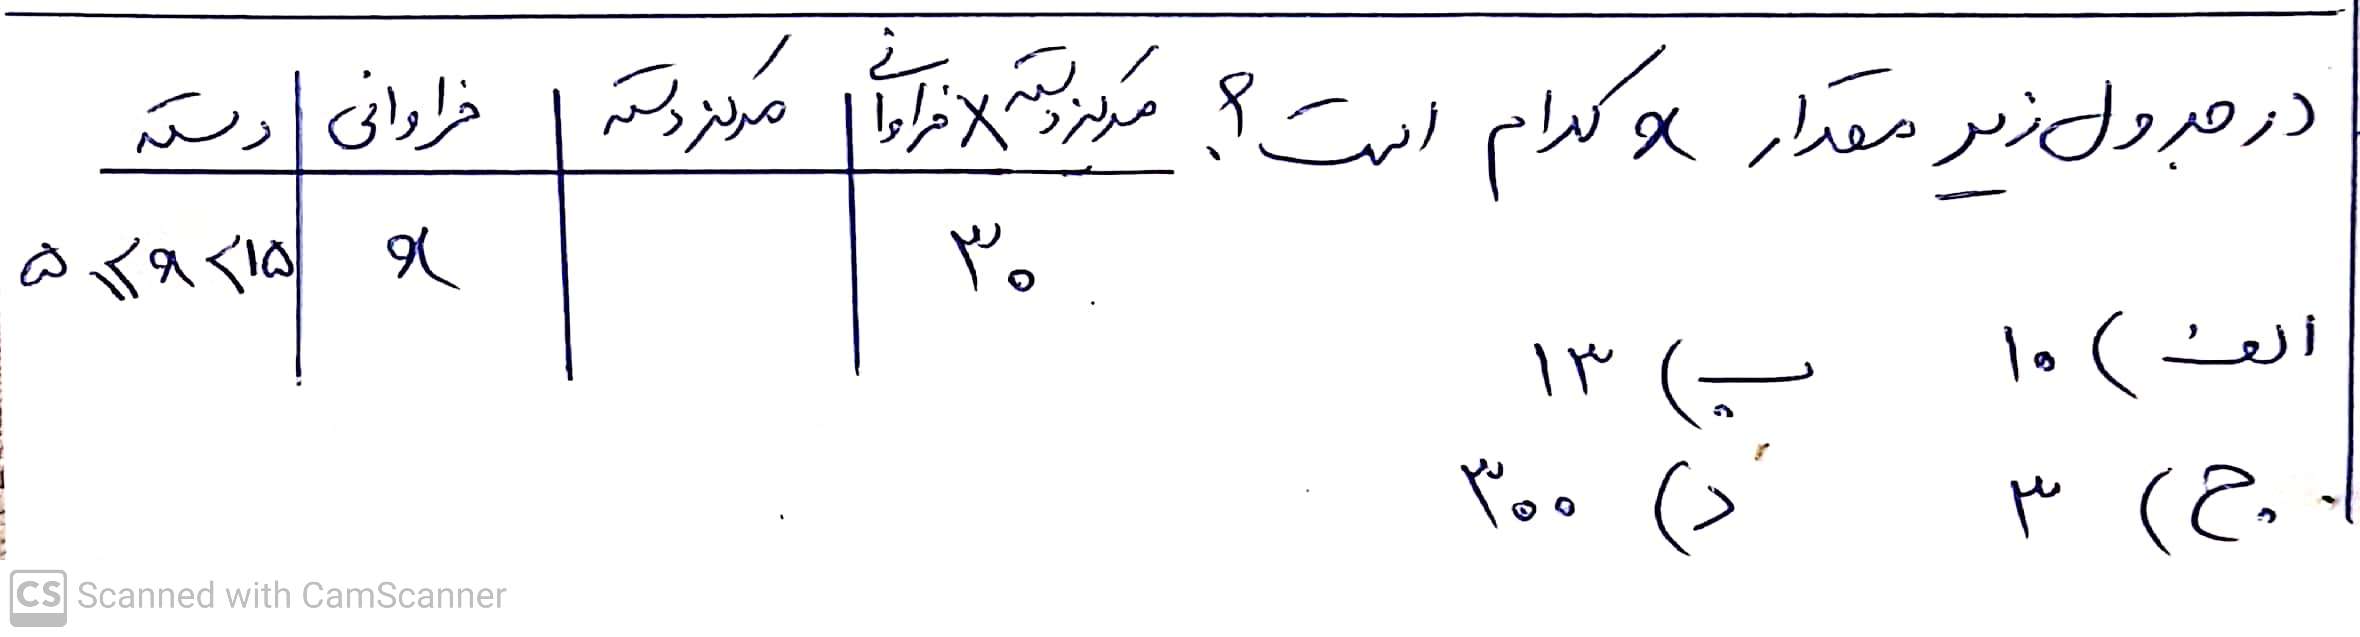 در جدول زیر مقدار x کدام است؟
دسته | فراوانی | مرکز دسته | مرکز دسته × فراوانی
۵ ≤ x < ۱۵ | x | | ۳۰
الف) ۱۰ ب) ۱۳
ج) ۳ د) ۳۰۰
CS Scanned with CamScanner